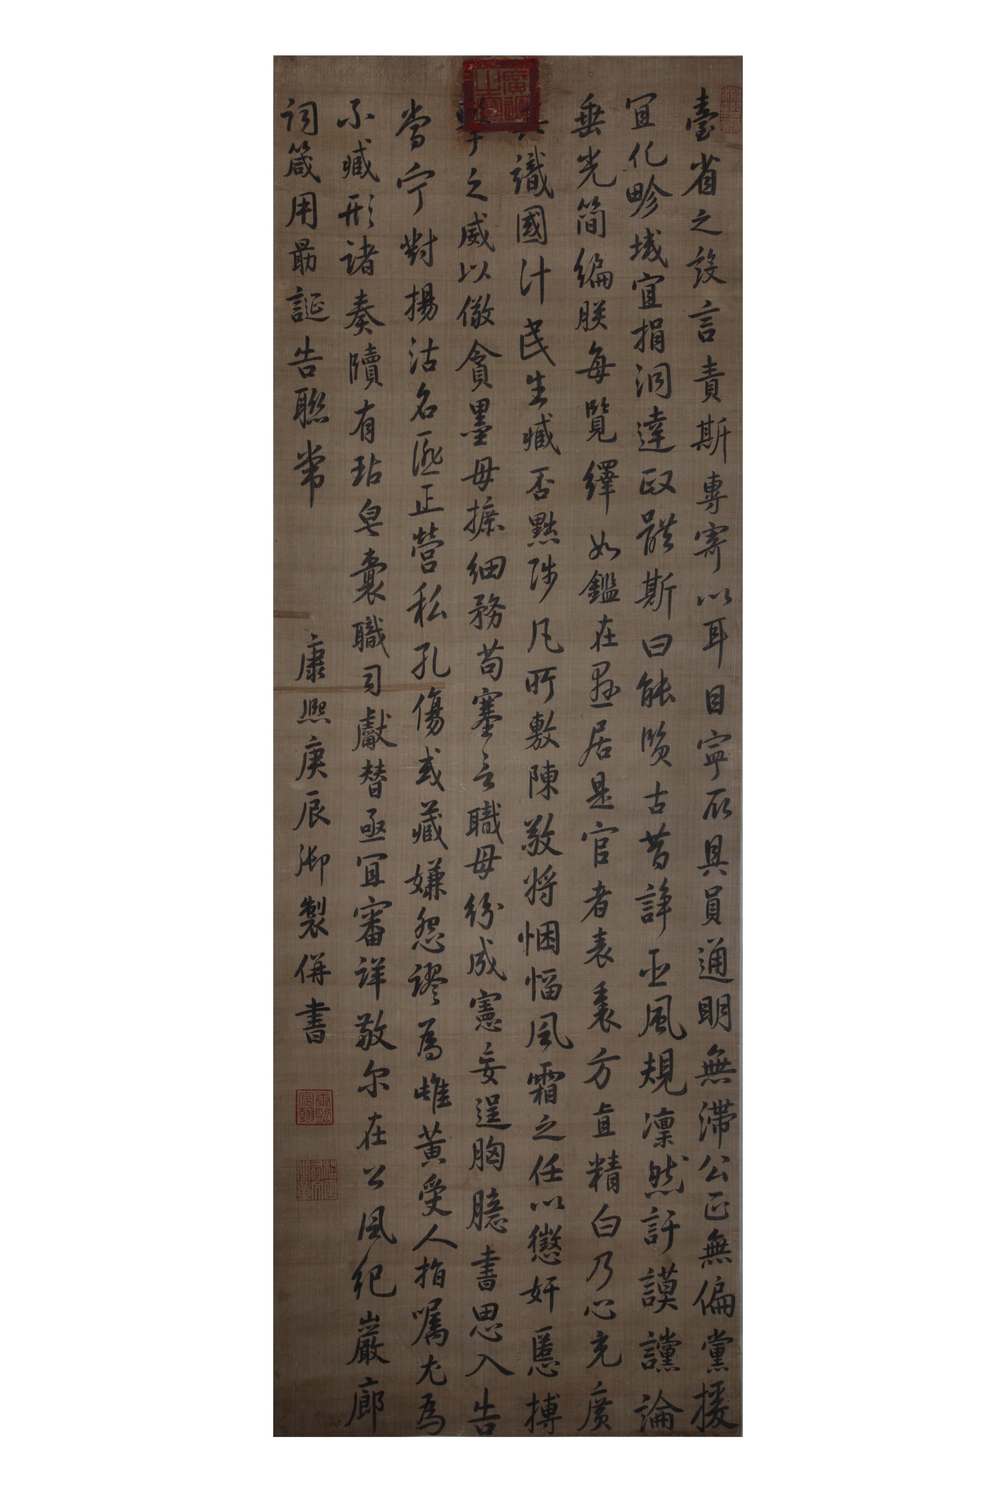 臺省之設言責斯專寄以耳目寧取具員通明無滯公正無偏黨援
宜化畛域宜捐洞達政體斯曰能賢古昔諍臣風規凜然訏謨讜論
垂光簡編朕每覽繹如鑑在懸居是官者表裏方直精白乃心充廣
識國計民生臧否黜陟凡所敷陳敬將悃愊風霜之任以懲奸慝搏
擊之威以儆貪墨毋摭細務苟塞言職毋紛成憲妄逞胸臆書思入告
當宁對揚沽名匪正營私孔傷或藏嫌怨謬為雌黃受人指嘱尤為
不臧形諸奏牘有玷皂囊職司獻替亟宜審詳敬尔在公風紀巖廊
詞箴用勗誕告聯常
康熙庚辰御製併書